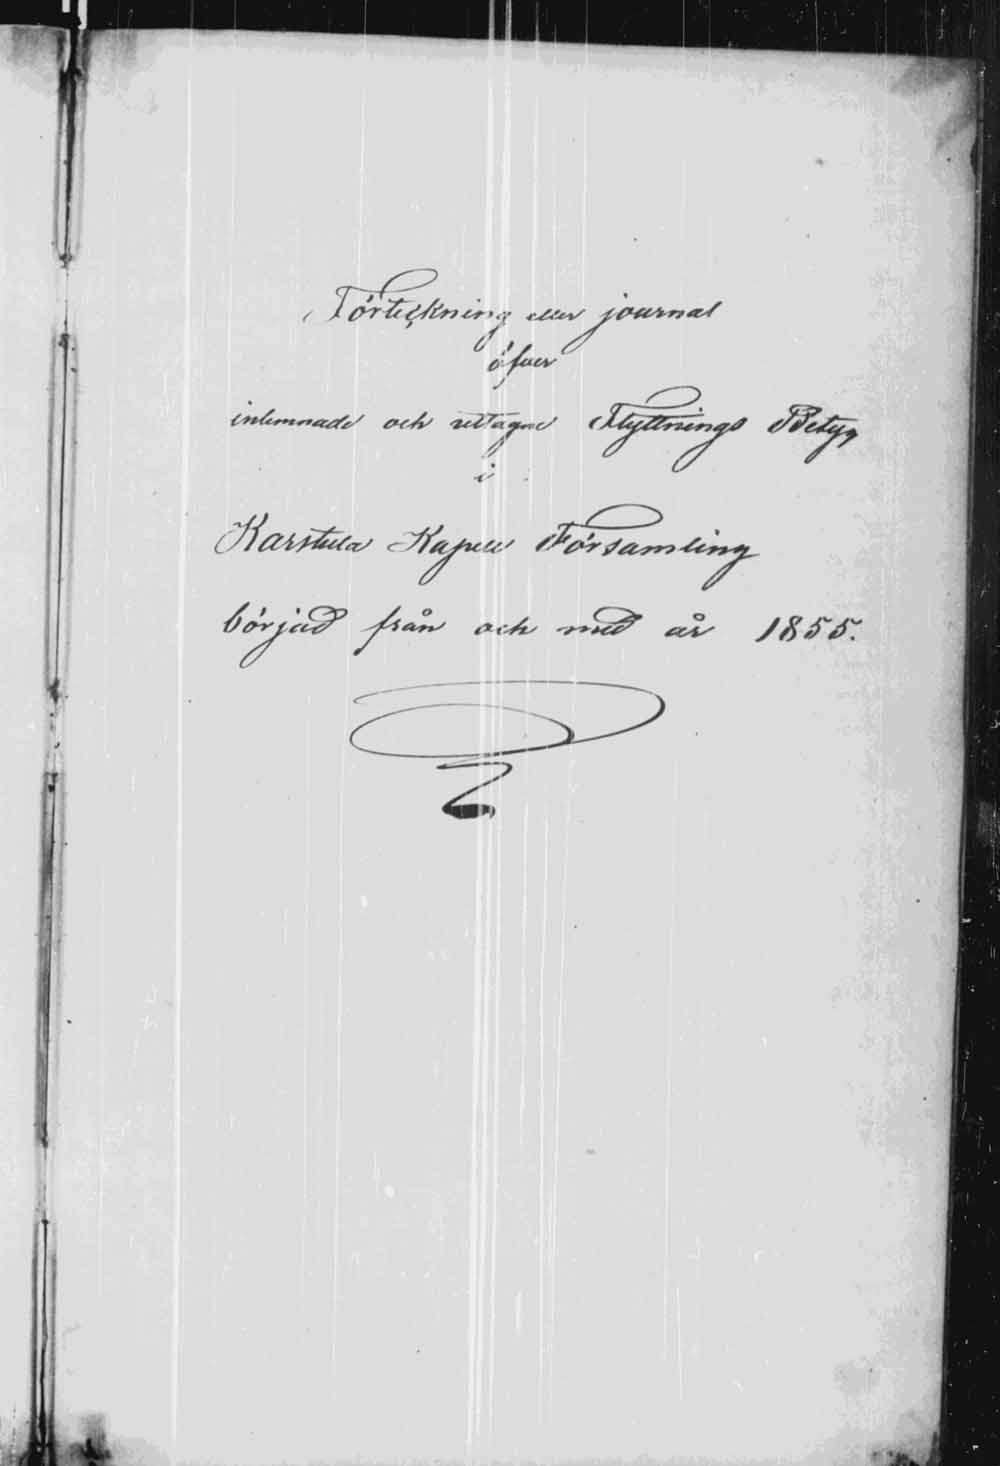 Förteckning eller journal
öfver
inlemnade och uttagne Flyttnings Betyg
i
Karstula Kapell Församling
börjad från och med år 1855.